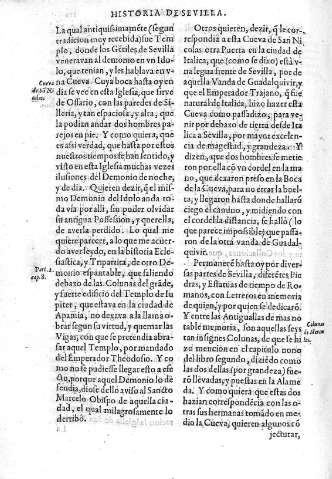 HISTORIA DE SEVILLA.
La qual antiquissimamẽte (segun
tradicion muy recebida) fue Tem
plo, donde los Gẽtiles de Sevilla
veneravan al demonio en vn Ido
lo, que tenian, y les hablava en vna
Cueva. Cuya boca hasta oy en
dia se vee en esta Iglesia, que sirve
de Ossario, con las paredes de Si-
lleria, y tan espaciosa, y alta, que
la podian andar dos hombres pa
rejos en pie. Y como quiera, que
es assi verdad, que hasta por estos
nuestros tiempos se han sentido, y
visto en esta Iglesia muchas vezes
ilusiones del Demonio de noche,
y de dia. Quieren dezir, q̃ el mis-
mo Demonio del Idolo anda to-
da via por alli, sin poder olvidar
su antigua Possession, y querella,
de averla perdido. Lo qual me
quiere parecer, a lo que me acuer
do aver leydo, en la historia Ecle-
siastica, y Tripartita, de otro De-
monio espantable, que saliendo
debaxo de las Colunas del grãde,
y fuerte edificio del Templo de Iu
piter, que estava en la ciudad de
Apamia, no dexava a la llama o-
brar segun su virtud, y quemar las
Vigas; con que se pretendia abra-
sar aquel Templo, por mandado
del Emperador Theodosio. Y co
mo no le pudiesse llegar esto a efe
cto, porque aquel Demonio lo de
fendia, diose dello aviso al Sancto
Marcelo Obispo de aquella ciu-
dad, el qual milagrosamente lo
derribò.
Cueva
de Sã Ni
colas.
Part. 2.
cap. 8.
Otros quieren, dezir, q̃ le cor-
respondia a esta Cueva de San Ni
colas, otra Puerta en la ciudad de
Italica, que (como se dixo) està v-
na legua frente de Sevilla, por de
aquella Vanda de Guadalquivir, y
que el Emperador Trajano, q̃ fue
natural de Italica, hizo hazer esta
Cueva como passadizo; para ve-
nir por debaxo de tierra desde Ital
ica a Sevilla, por mayor excelen-
cia de magestad, y grandeza. Y
dizen, que dos hombres se metie
ron por ella cõ vn cordel en la ma
no, que dexaron preso en la Boca
de la Cueva, para no errar la buel-
ta, y llegaron hasta donde hallarõ
ciego el cãmino, y midiendo con
el cordel la distancia, se hallò (lo
que parece impossible) que passa-
ron de la otra vanda de Guadal-
quivir.
Permanecẽ hasta oy por diver-
sas partes de Sevilla, diferẽtes Pie
dras, y Estatuas de tiempo de Ro-
manos, con Letreros en memoria
de quien, y por quien se dedicarõ.
Y entre las Antiguallas de mas no
table memoria, son aquellas seys
tan insignes Colunas, de que se hi
zo mencion en el capitulo nono
del libro segundo, diziẽdo como
las dos dellas (por grandeza) fue-
rõ llevadas, y puestas en la Alame
da. Y como quiera que estas dos
hazian correspondẽcia con las o-
tras sus hermanas tomãdo en me-
dio la Cueva, quieren algunos cõ
jecturar,